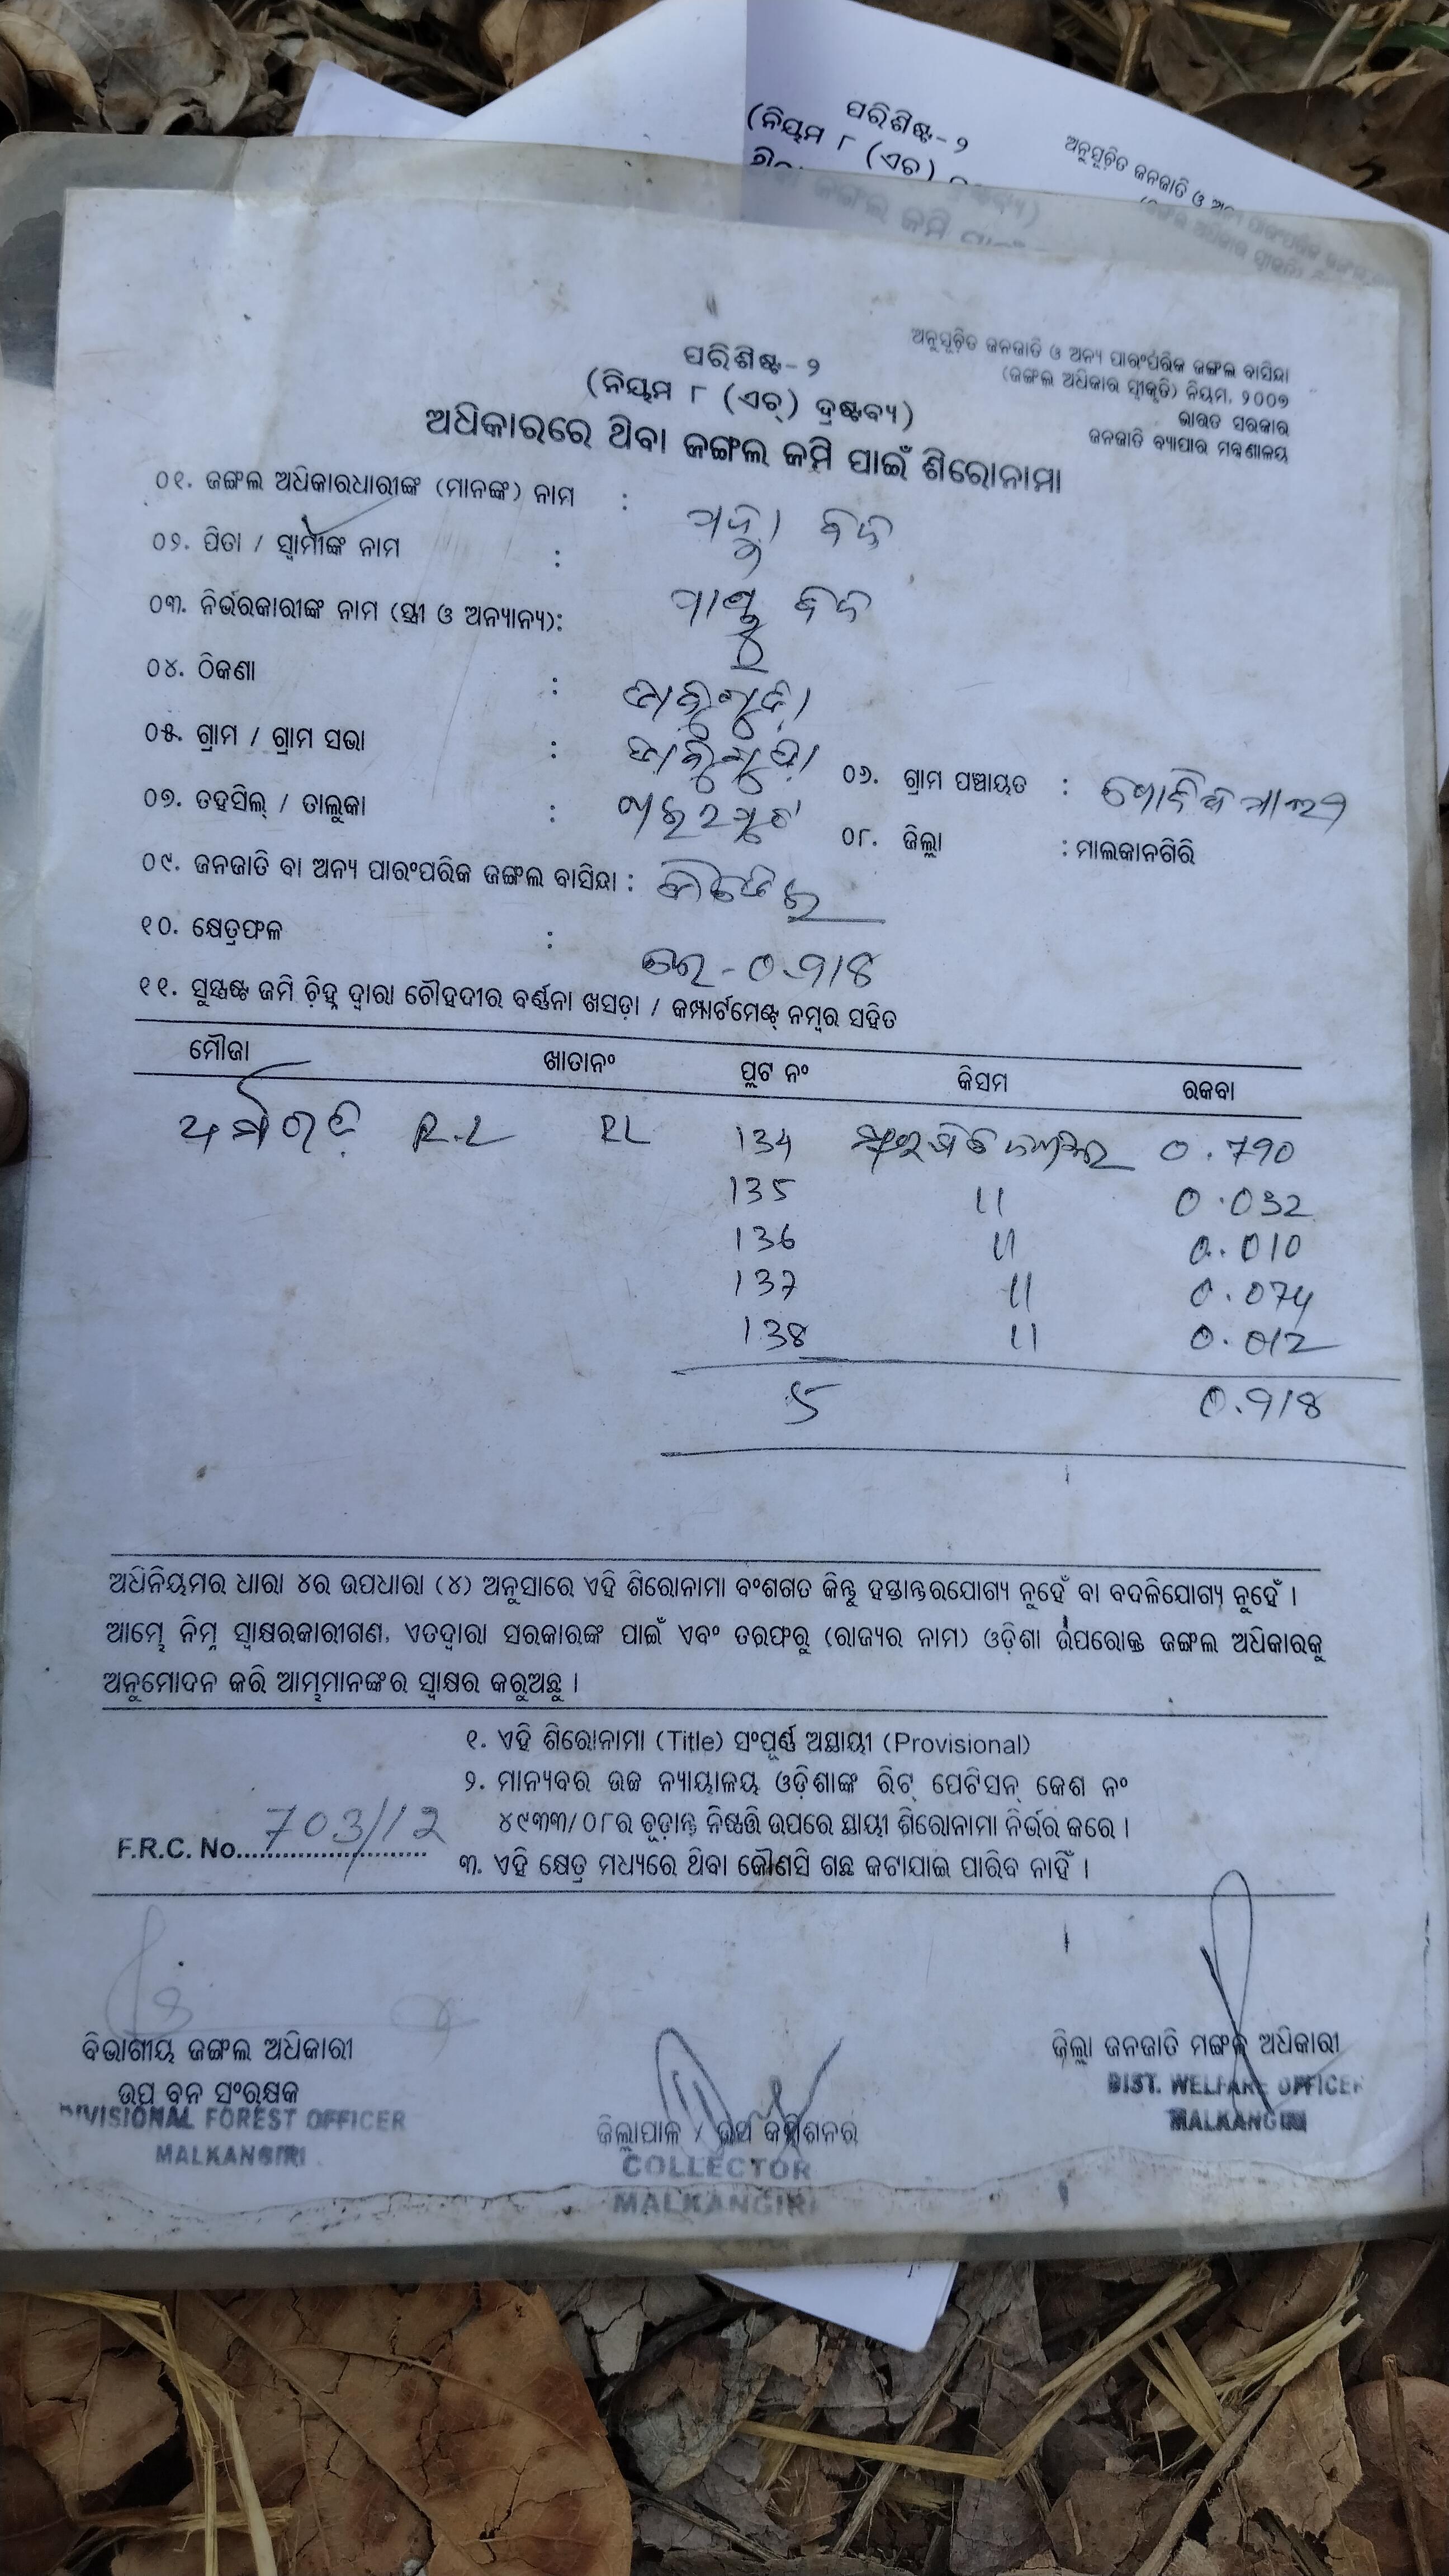 ପରିଶିଷ୍ଟ-୨
(ନିୟମ ୮ (ଏଚ)
ଅନୁସୂଚିତ ଜନଜାତି ଓ
ଅନୁସୂଚିତ ଜନଜାତି ଓ ଅନ୍ୟ ପାରଂପରିକ ଜଙ୍ଗଲ ବାସିନ୍ଦା
(ଜଙ୍ଗଲ ଅଧିକାର ସ୍ୱୀକୃତି) ନିୟମ, ୨୦୦୭
ଭାରତ ସରକାର
ଜନଜାତି ବ୍ୟାପାର ମନ୍ତ୍ରଣାଳୟ
ପରିଶିଷ୍ଟ-୨
(ନିୟମ ୮ (ଏଚ୍) ଦ୍ରଷ୍ଟବ୍ୟ)
ଅଧିକାରରେ ଥିବା ଜଙ୍ଗଲ ଜମି ପାଇଁ ଶିରୋନାମା
୦୧. ଜଙ୍ଗଲ ଅଧିକାରଧାରୀଙ୍କ (ମାନଙ୍କ) ନାମ :
୦୨. ପିତା / ସ୍ୱାମୀଙ୍କ ନାମ :
୦୩. ନିର୍ଭରକାରୀଙ୍କ ନାମ (ସ୍ତ୍ରୀ ଓ ଅନ୍ୟାନ୍ୟ):
୦୪. ଠିକଣା :
୦୫. ଗ୍ରାମ / ଗ୍ରାମ ସଭା : ୦୬. ଗ୍ରାମ ପଞ୍ଚାୟତ :
୦୭. ତହସିଲ୍ / ତାଲୁକା : ୦୮. ଜିଲ୍ଲା : ମାଲକାନଗିରି
୦୯. ଜନଜାତି ବା ଅନ୍ୟ ପାରଂପରିକ ଜଙ୍ଗଲ ବାସିନ୍ଦା :
୧୦. କ୍ଷେତ୍ରଫଳ : 0.918
୧୧. ସୁସ୍ପଷ୍ଟ ଜମି ଚିହ୍ନ ଦ୍ୱାରା ଚୌହଦୀର ବର୍ଣ୍ଣନା ଖସଡ଼ା / କମ୍ପାର୍ଟମେଣ୍ଟ୍ ନମ୍ବର ସହିତ
ମୌଜା ଖାତାନଂ ପ୍ଲଟ ନଂ କିସମ ରକବା
R.L RL 134 0.790
135 11 0.032
136 11 0.010
137 11 0.074
138 11 0.012
5 0.918
ଅଧିନିୟମର ଧାରା ୪ର ଉପଧାରା (୪) ଅନୁସାରେ ଏହି ଶିରୋନାମା ବଂଶଗତ କିନ୍ତୁ ହସ୍ତାନ୍ତରଯୋଗ୍ୟ ନୁହେଁ ବା ବଦଳିଯୋଗ୍ୟ ନୁହେଁ ।
ଆମ୍ଭେ ନିମ୍ନ ସ୍ୱାକ୍ଷରକାରୀଗଣ, ଏତଦ୍ୱାରା ସରକାରଙ୍କ ପାଇଁ ଏବଂ ତରଫରୁ (ରାଜ୍ୟର ନାମ) ଓଡ଼ିଶା ଉପରୋକ୍ତ ଜଙ୍ଗଲ ଅଧିକାରକୁ
ଅନୁମୋଦନ କରି ଆମ୍ଭମାନଙ୍କର ସ୍ୱାକ୍ଷର କରୁଅଛୁ ।
୧. ଏହି ଶିରୋନାମା (Title) ସଂପୂର୍ଣ୍ଣ ଅସ୍ଥାୟୀ (Provisional)
୨. ମାନ୍ୟବର ଉଚ୍ଚ ନ୍ୟାୟାଳୟ ଓଡ଼ିଶାଙ୍କ ରିଟ୍ ପେଟିସନ୍ କେଶ ନଂ
୪୯୩୩/୦୮ର ଚୂଡ଼ାନ୍ତ ନିଷ୍ପତ୍ତି ଉପରେ ସ୍ଥାୟୀ ଶିରୋନାମା ନିର୍ଭର କରେ ।
F.R.C. No. 703/12
୩. ଏହି କ୍ଷେତ୍ର ମଧ୍ୟରେ ଥିବା କୌଣସି ଗଛ କଟାଯାଇ ପାରିବ ନାହିଁ ।
ବିଭାଗୀୟ ଜଙ୍ଗଲ ଅଧିକାରୀ
ଉପ ବନ ସଂରକ୍ଷକ
DIVISIONAL FOREST OFFICER
MALKANGIRI
ଜିଲ୍ଲାପାଳ / ଉପ କମିଶନର
COLLECTOR
MALKANGIRI
ଜିଲ୍ଲା ଜନଜାତି ମଙ୍ଗଳ ଅଧିକାରୀ
DIST. WELFARE OFFICER
MALKANGIRI